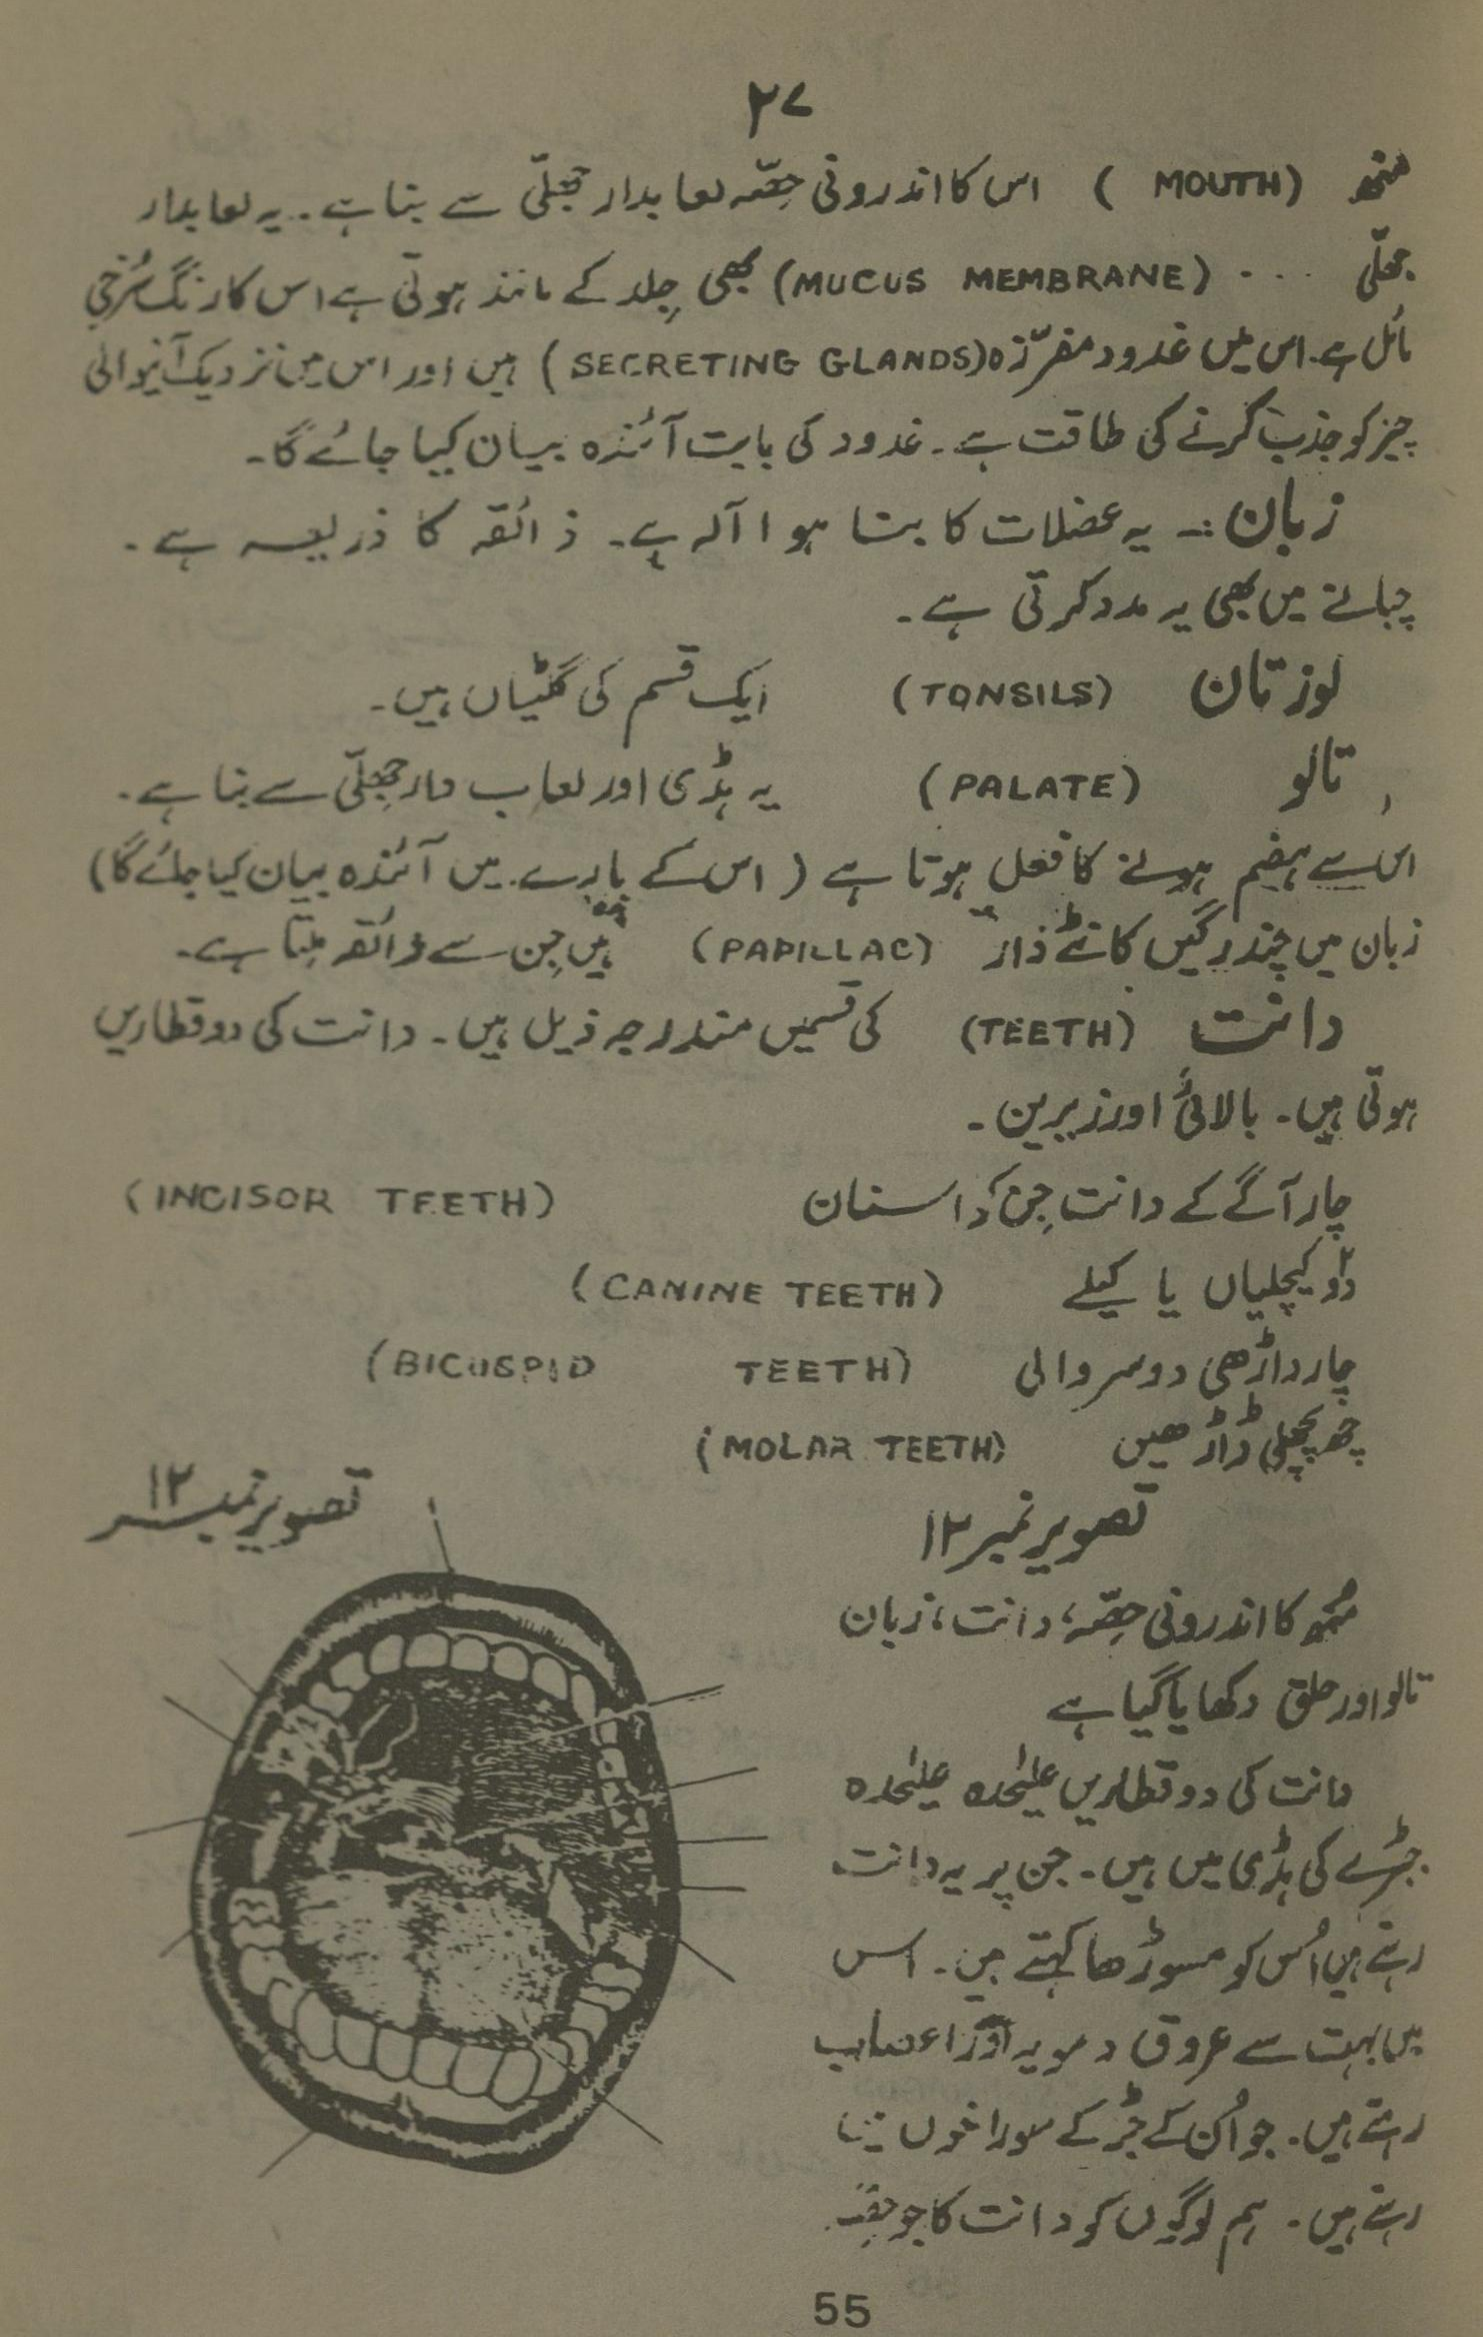 ۲۷
منھ (MOUTH) اس کا اندرونی حِصّہ لعابدار جھلّی سے بنا ہے۔ یہ لعابدار
جھلّی ... (MUCUS MEMBRANE) بھی جِلد کے مانند ہوتی ہے اس کا رنگ سُرخی
مائل ہے۔ اس میں غدود مفرّزہ (SECRETING GLANDS) ہیں اور اس میں نزدیک آنیوالی
چیز کو جذب کرنے کی طاقت ہے۔ غدود کی بابت آئندہ بیان کیا جائے گا۔
زبان :- یہ عضلات کا بنا ہوا آلہ ہے۔ ذائقہ کا ذریعہ ہے۔
چبانے میں بھی یہ مدد کرتی ہے۔
لوزتان (TONSILS) ایک قسم کی گلٹیاں ہیں۔
تالو (PALATE) یہ ہڈی اور لعاب دار جھِلّی سے بنا ہے۔
اس سے ہضم ہونے کا فعل ہوتا ہے (اس کے بارے میں آئندہ بیان کیا جائے گا)
زبان میں چند رگیں کانٹے دار (PAPILLAC) ہیں جِن سے ذائقہ مِلتا ہے۔
دانت (TEETH) کی قسمیں مندرجہ ذیل ہیں۔ دانت کی دو قطاریں
ہوتی ہیں۔ بالائی اور زیرین۔
چار آگے کے دانت جِن کو اسنان (INCISOR TEETH)
دو کیچلیاں یا کیلے (CANINE TEETH)
چار داڑھی دوسر والی (BICUSPID TEETH)
چھ پچھلی ڈاڑھیں (MOLAR TEETH)
تصویر نمبر ۱۲
تصویر نمبر ۱۲
منھ کا اندرونی حِصّہ، دانت، زبان
تالو اور حلق دکھایا گیا ہے
دانت کی دو قطاریں علیٰحدہ علیٰحدہ
جبڑے کی ہڈی میں ہیں۔ جن پر یہ دانت
رہتے ہیں اُس کو مسوڑھا کہتے ہیں۔ اس
میں بہت سے عروق دمویہ اور اعصاب
رہتے ہیں۔ جو اُن کے جڑ کے سوراخوں میں
رہتے ہیں۔ ہم لوگوں کو دانت کا جو حِصّہ
55